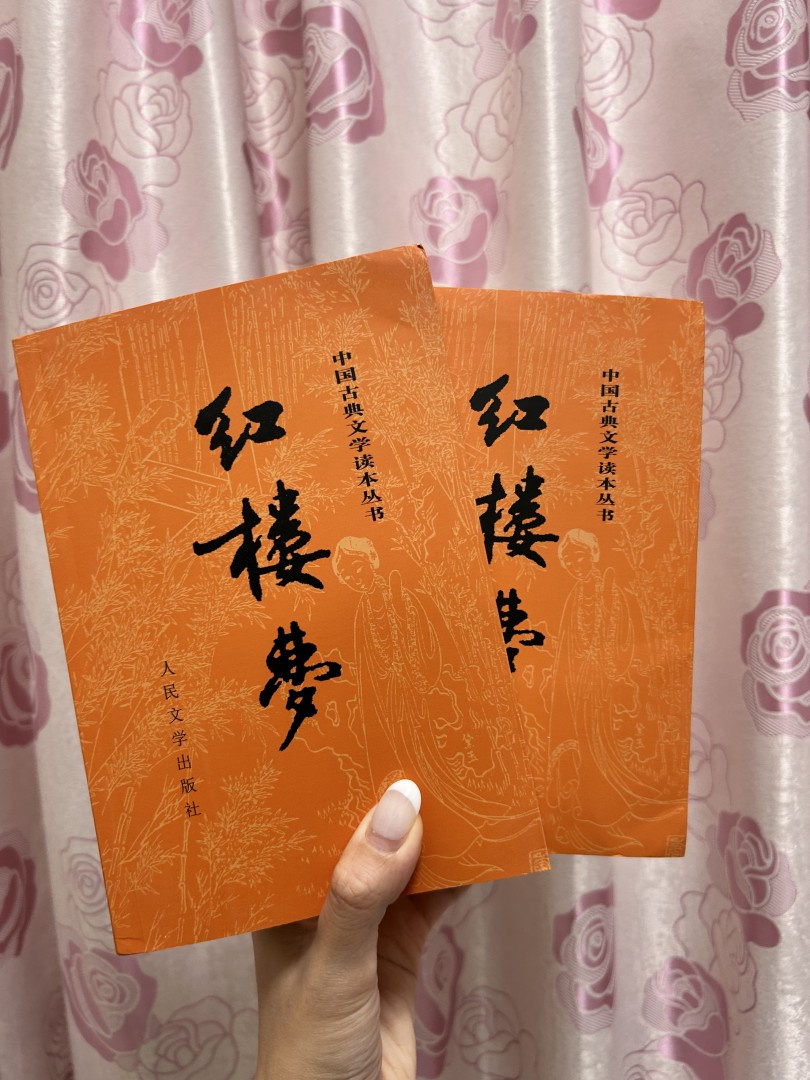 中国古典文学读本丛书
红楼梦
人民文学出版社
中国古典文学读本丛书
红楼梦